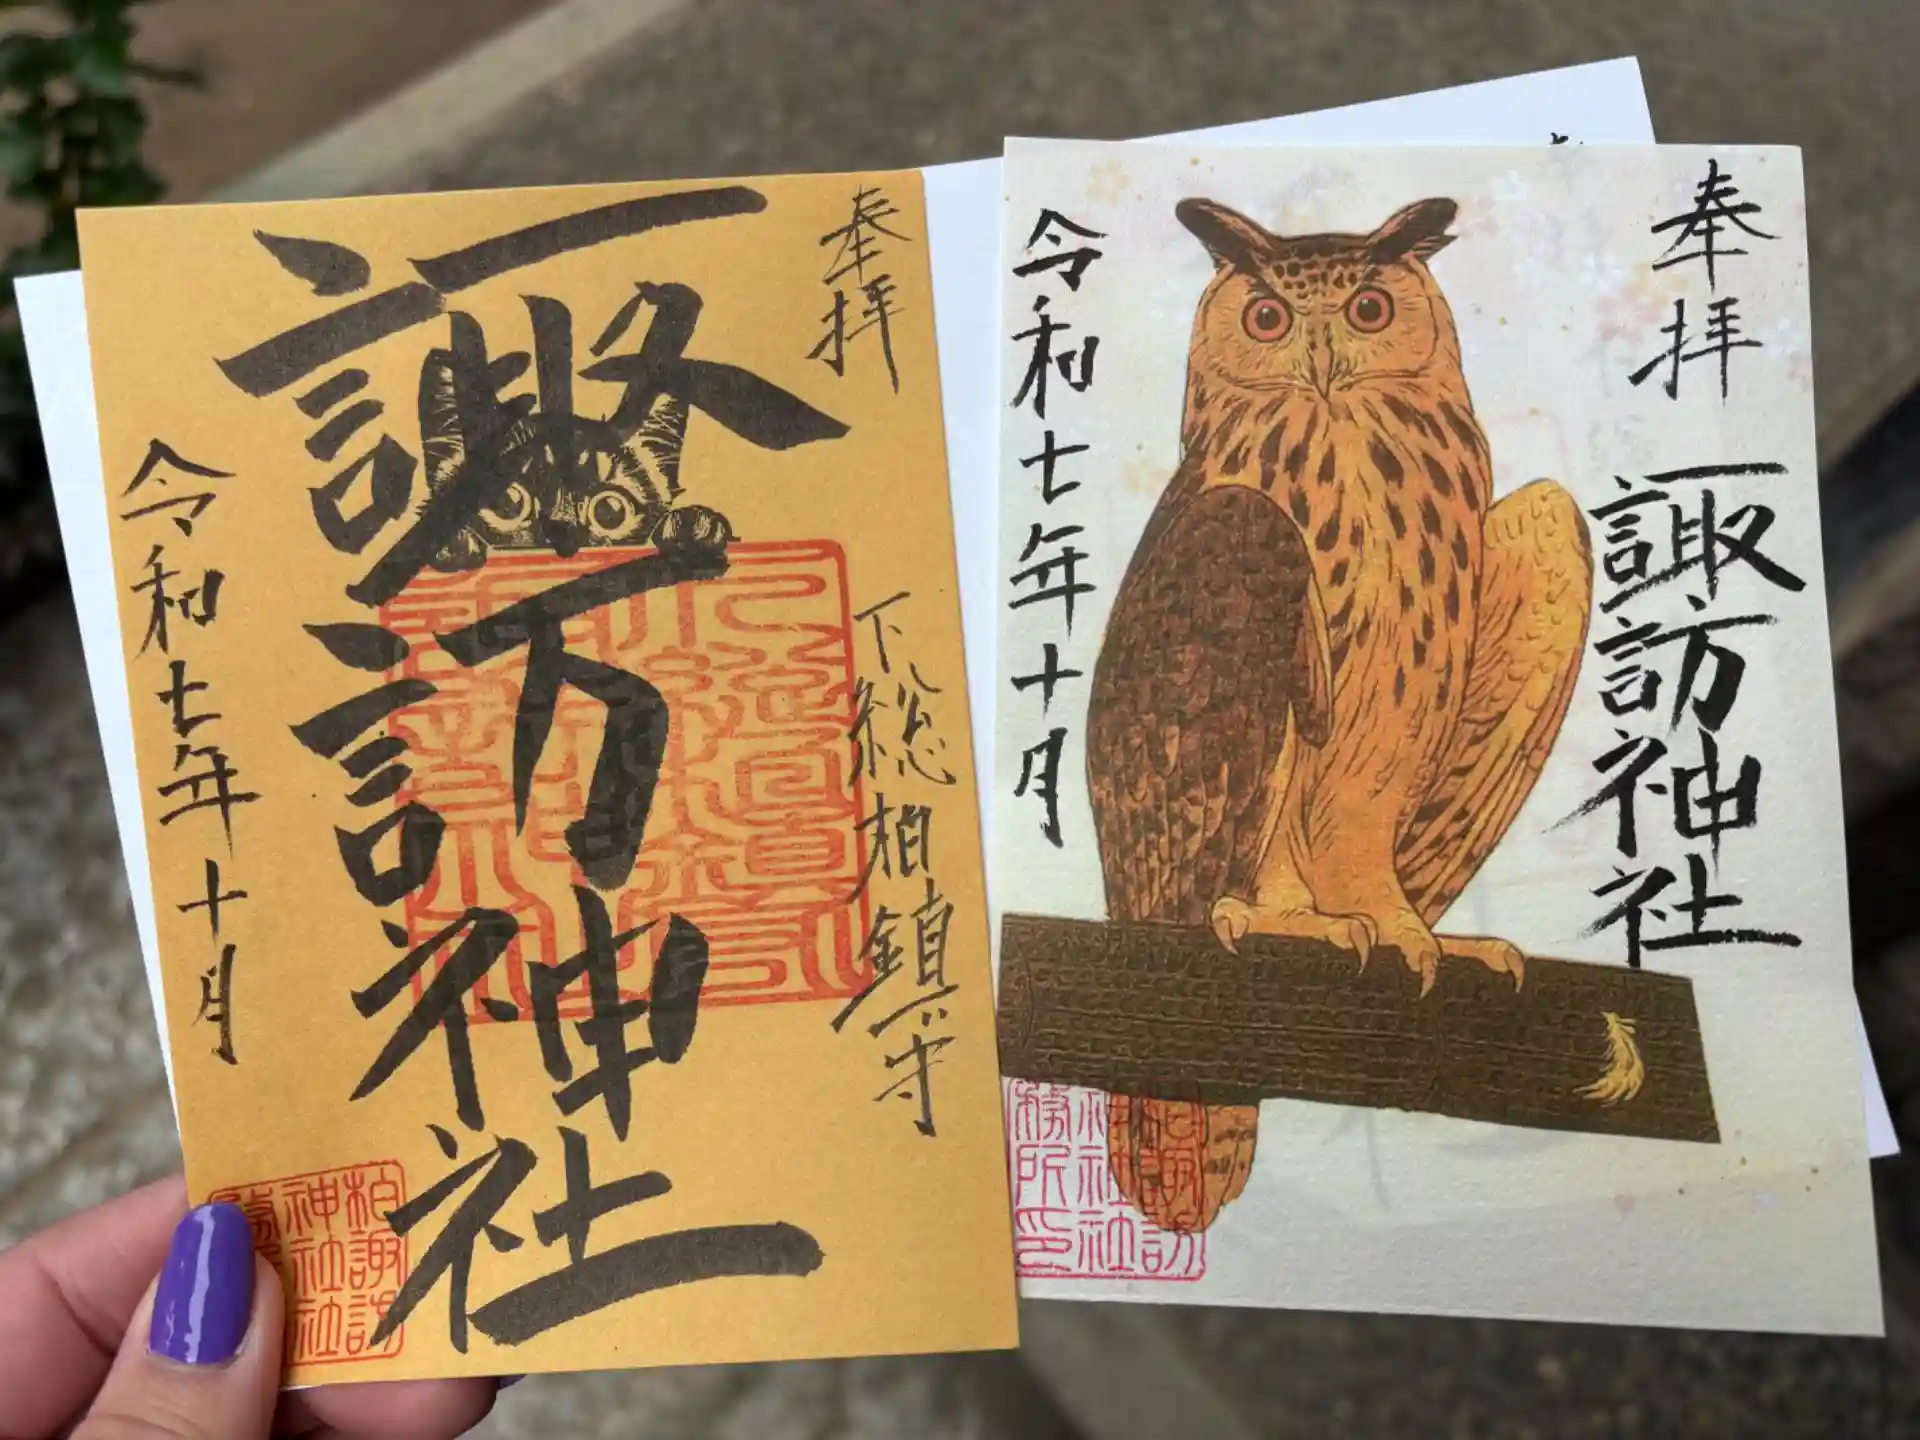 奉拝
下総柏鎮守
諏訪神社
令和七年十月
柏諏訪
神社社
奉拝
諏訪神社
令和七年十月
柏諏訪
神社社
務所印